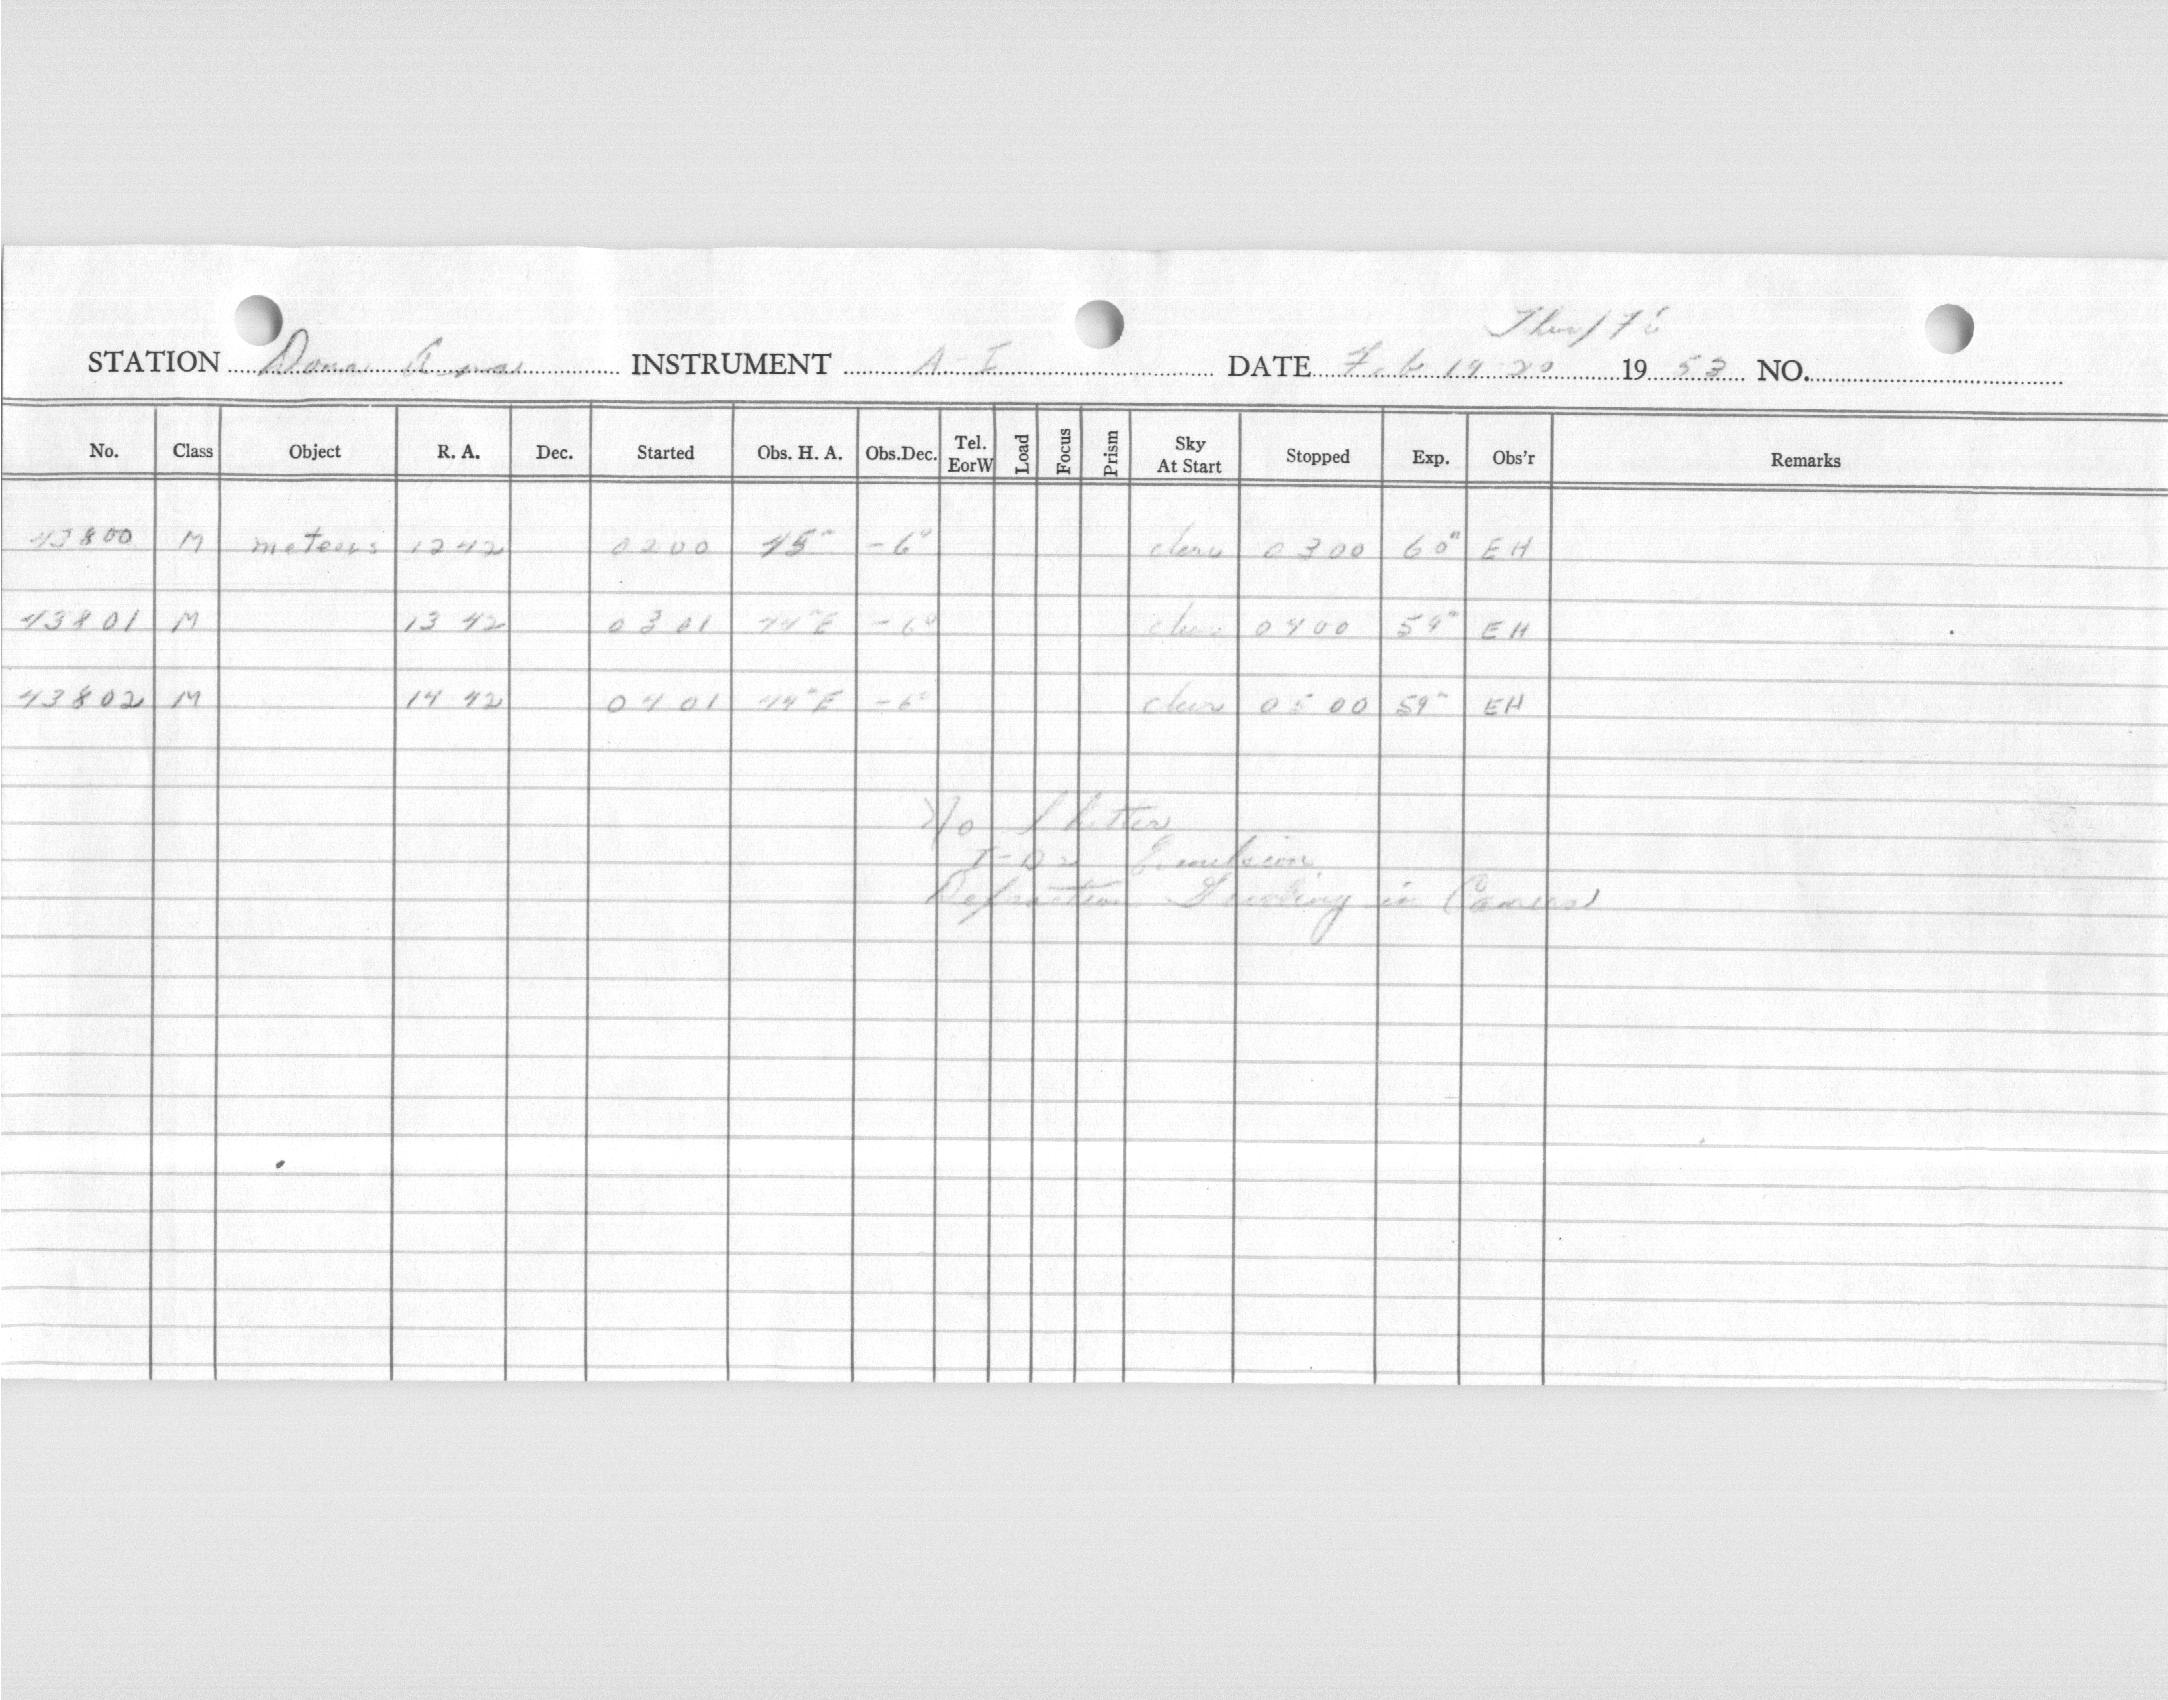 Thur/Fri
STATION Dona Ana INSTRUMENT A-I DATE Feb 19-20 1953 NO.
No. Class Object R. A. Dec. Started Obs. H. A. Obs.Dec. Tel. EorW Load Focus Prism Sky At Start Stopped Exp. Obs'r Remarks
43800 M meteors 1242 0200 45m -6° clear 0300 60m EH
43801 M 13 42 0301 44mE -6° clear 0400 59m EH
43802 M 14 42 0401 44mE -6° clear 0500 59m EH
No Shutter
I-D2 Emulsion
Defraction Grating in Camera